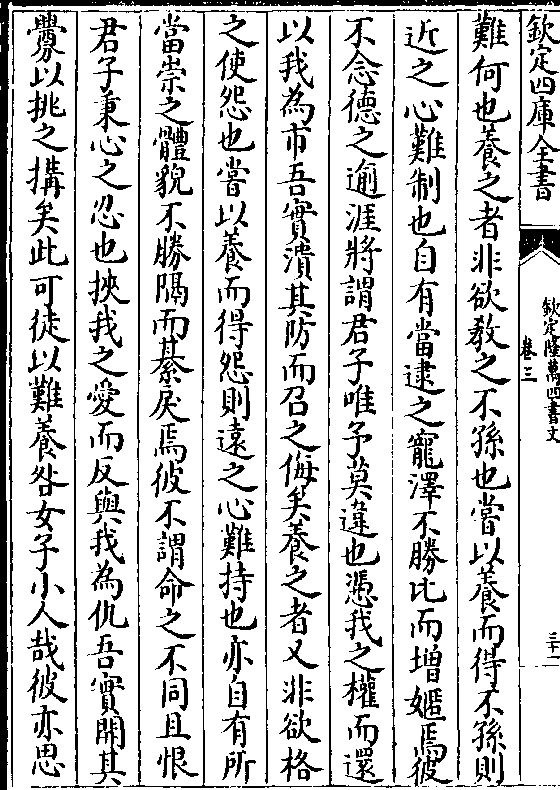 欽定四庫全書
欽定隆萬四書文
卷三
三十一
難何也養之者非欲教之不孫也嘗以養而得不孫則
近之心難制也自有當逮之寵澤不勝比而增嫟焉彼
不念德之逾涯將謂君子唯予莫違也憑我之權而還
以我為市吾實潰其防而召之侮矣養之者又非欲格
之使怨也嘗以養而得怨則遠之心難持也亦自有所
當崇之體貌不勝隔而綦戾焉彼不謂命之不同且恨
君子秉心之忍也挾我之愛而反與我為仇吾實開其
釁以挑之搆矣此可徒以難養咎女子小人哉彼亦思